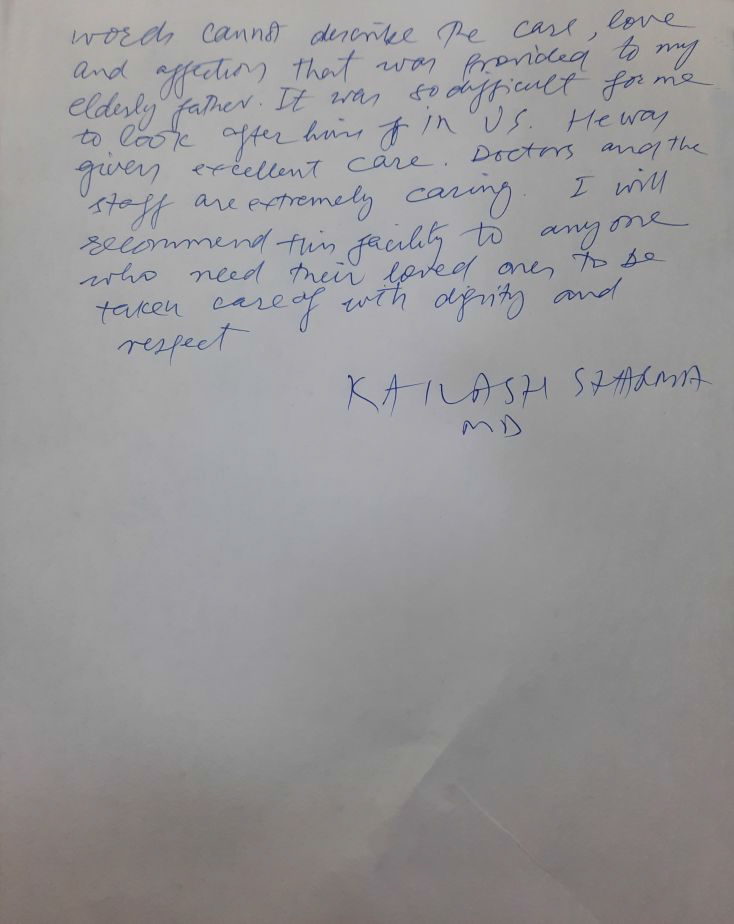 words cannot describe the care, love
and affection that was provided to my
elderly father. It was so difficult for me
to look after him in US. He was
given excellent care. Doctors and the
staff are extremely caring. I will
recommend this facility to anyone
who need their loved ones to be
taken care of with dignity and
respect
KAILASH SHARMA
MD